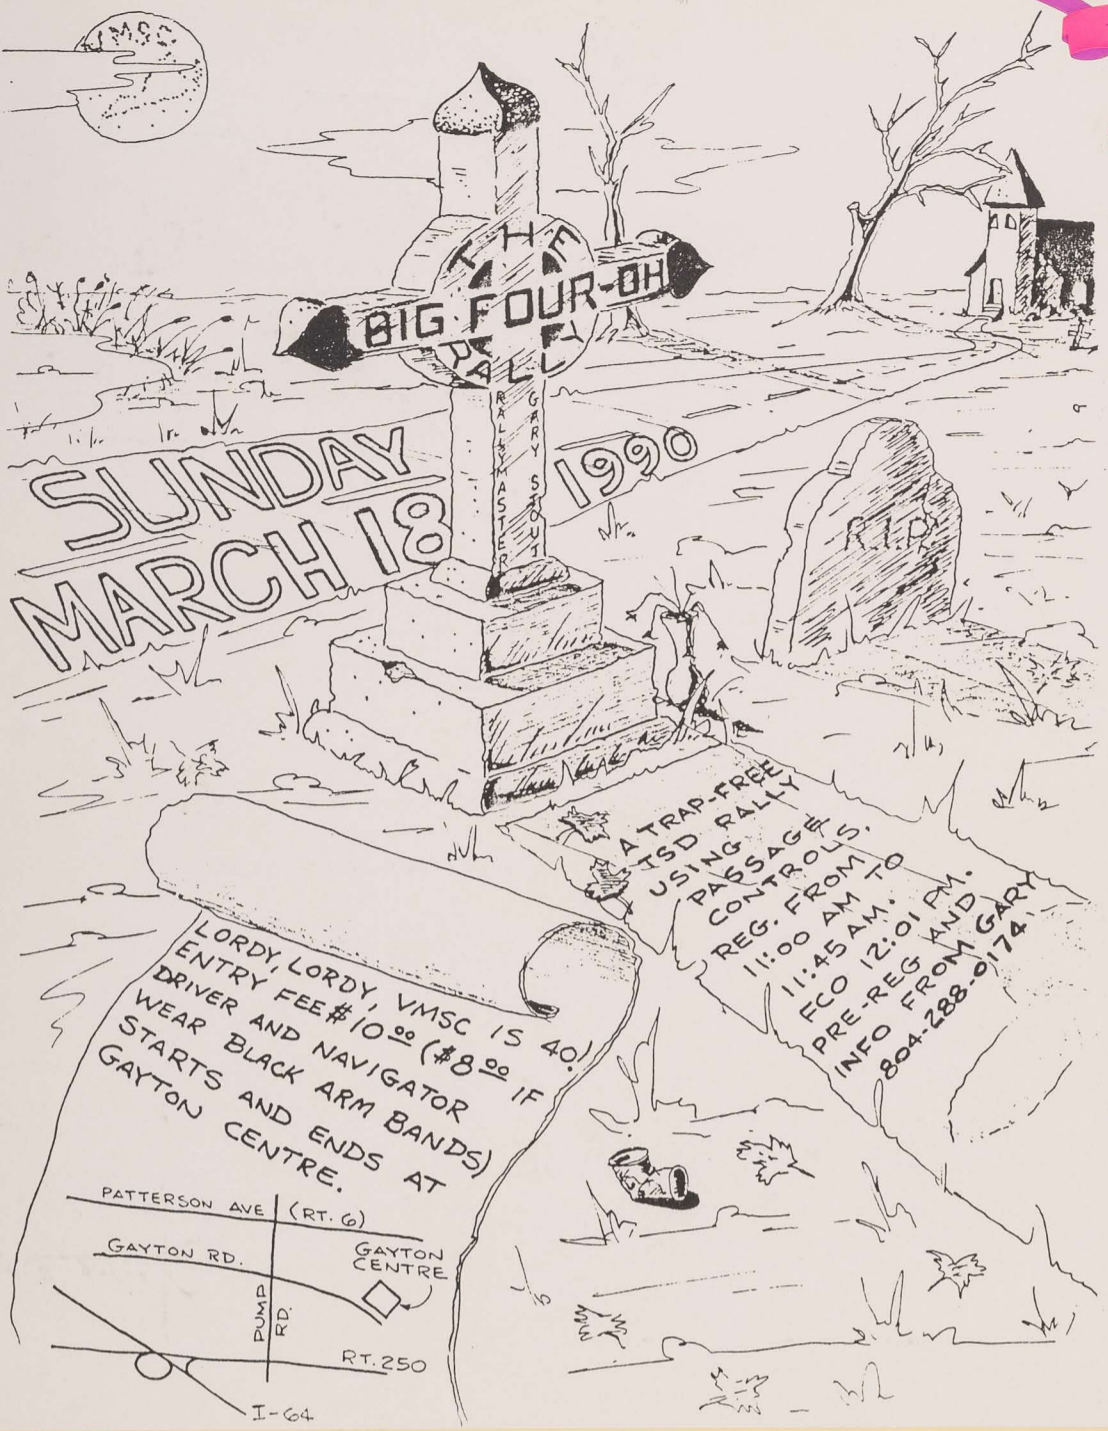 VMSC
THE
BIG FOUR-OH
RALLY
RALLYMASTER
GARY STOUT
SUNDAY
MARCH 18
1990
R.I.P.
A TRAP-FREE
TSD RALLY
USING
PASSAGE
CONTROLS.
REG. FROM
11:00 AM TO
11:45 AM.
FCO 12:01 PM.
PRE-REG AND
INFO FROM GARY
804-288-0174.
LORDY, LORDY, VMSC IS 40!
ENTRY FEE $10.00 ($8.00 IF
DRIVER AND NAVIGATOR
WEAR BLACK ARM BANDS)
STARTS AND ENDS AT
GAYTON CENTRE.
PATTERSON AVE (RT. 6)
GAYTON RD.
GAYTON
CENTRE
PUMP
RD.
RT. 250
I-64